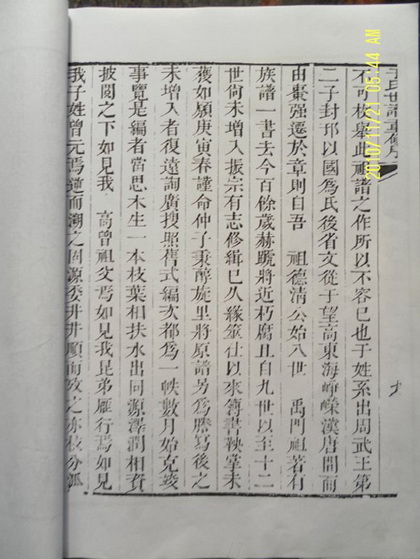 于氏世譜重修序
不可枚舉此祖譜之作所以不容已也于姓系出周武王第
二子封邘以國為氏後省文從于望高東海崢嶸漢唐間而
由棗强遷於章則自吾 祖德清公始八世 禹門祖著有
族譜一書去今百餘歲赫蹏將近朽腐且自九世以至十二
世尚未增入振宗有志修緝巳久緣筮仕以來簿書鞅掌未
獲如願庚寅春謹命仲子秉醇旋里將原譜另為謄寫後之
未增入者復遠詢廣搜照舊式編次都為一帙數月始克竣
事覽是編者當思木生一本枝葉相扶水出同源澤潤相資
披閱之下如見我 高曾祖父焉如見我昆弟雁行焉如見
我子姓曾元焉遡而溯之固源委井井順而攷之亦枝分派
2010/11/21 05:44 AM